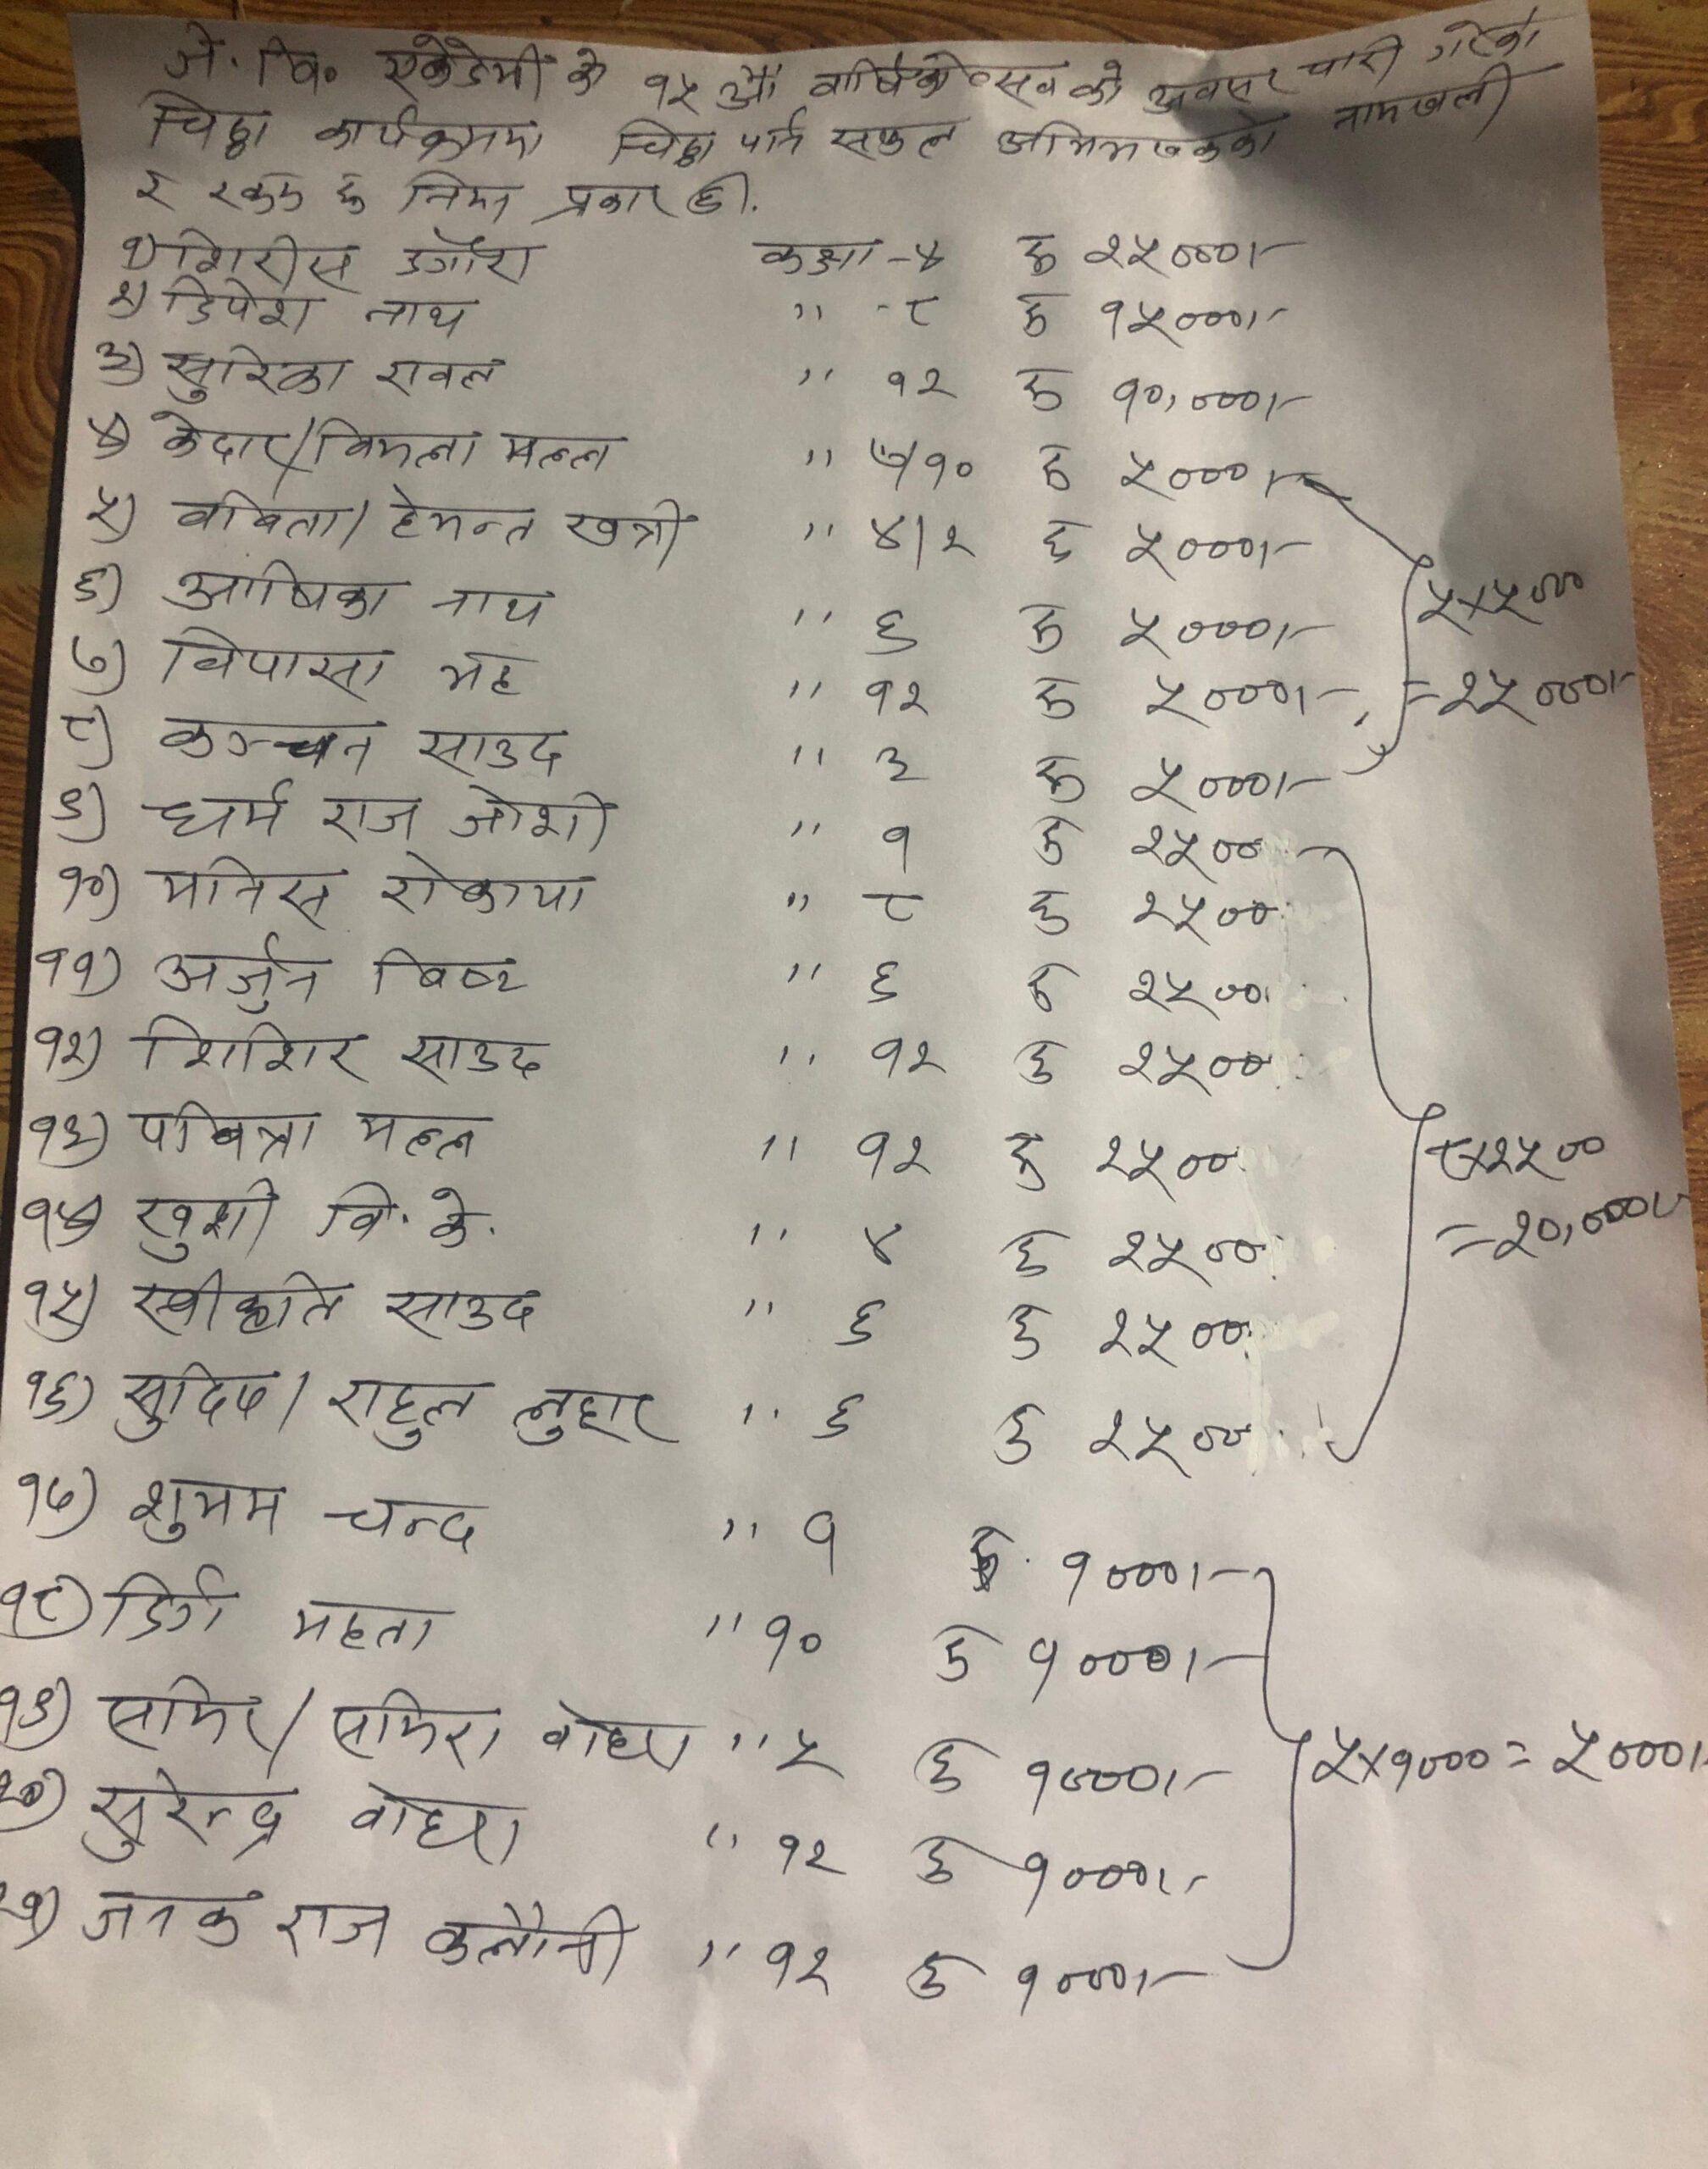 जे. वि. एकेडेमी को १५ औं वार्षिकोत्सव को अवसर पारी गरेको
चिठ्ठा कार्यक्रममा चिठ्ठा पार्न सफल अभिभावकको नामावली
र रकम रु निम्न प्रकार छ.
१) शिरीस डगौरा कक्षा -४ रु २५०००।-
२) डिपेश नाथ " -८ रु १५०००।-
३) सुरिका रावल " १२ रु १०,०००।-
४) केदार/विमला मल्ल " ७/१० रु ५०००।-
५) वविता/हेमन्त खत्री " ४/२ रु ५०००।-
६) आषिका नाथ " ६ रु ५०००।-
७) विपासा भट्ट " १२ रु ५०००।-
५x५०००
= २५०००।-
८) कञ्चन साउद " ३ रु ५०००।-
९) धर्म राज जोशी " १ रु २५००
१०) मनिस रोकाया " ८ रु २५००
११) अर्जुन बिष्ट " ६ रु २५००
१२) शिशिर साउद " १२ रु २५००
१३) पबित्रा मल्ल " १२ रु २५००
८x२५००
= २०,०००।-
१४) खुशी वि. के. " ४ रु २५००
१५) स्वीकृति साउद " ६ रु २५००
१६) सुदिप/राहुल लुहार " ६ रु २५००
१७) शुभम चन्द " १ रु. १०००।-
१८) महता " १० रु १०००।-
१९) समिर/समिरा वोहरा " ५ रु १०००।-
५x१००० = ५०००।-
२०) सुरेन्द्र वोहरा " १२ रु १०००।-
२१) जनक राज कलौनी " १२ रु १०००।-